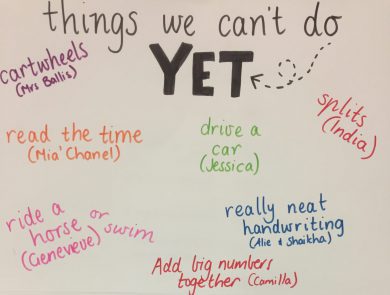 things we can't do
YET
cartwheels
(Mrs Ballis)
splits
(India)
read the time
(Mia'Chanel)
drive a
car
(Jessica)
ride a
horse or swim
(Genevieve)
really neat
handwriting
(Alie & Shaikha)
Add big numbers
together (Camilla)